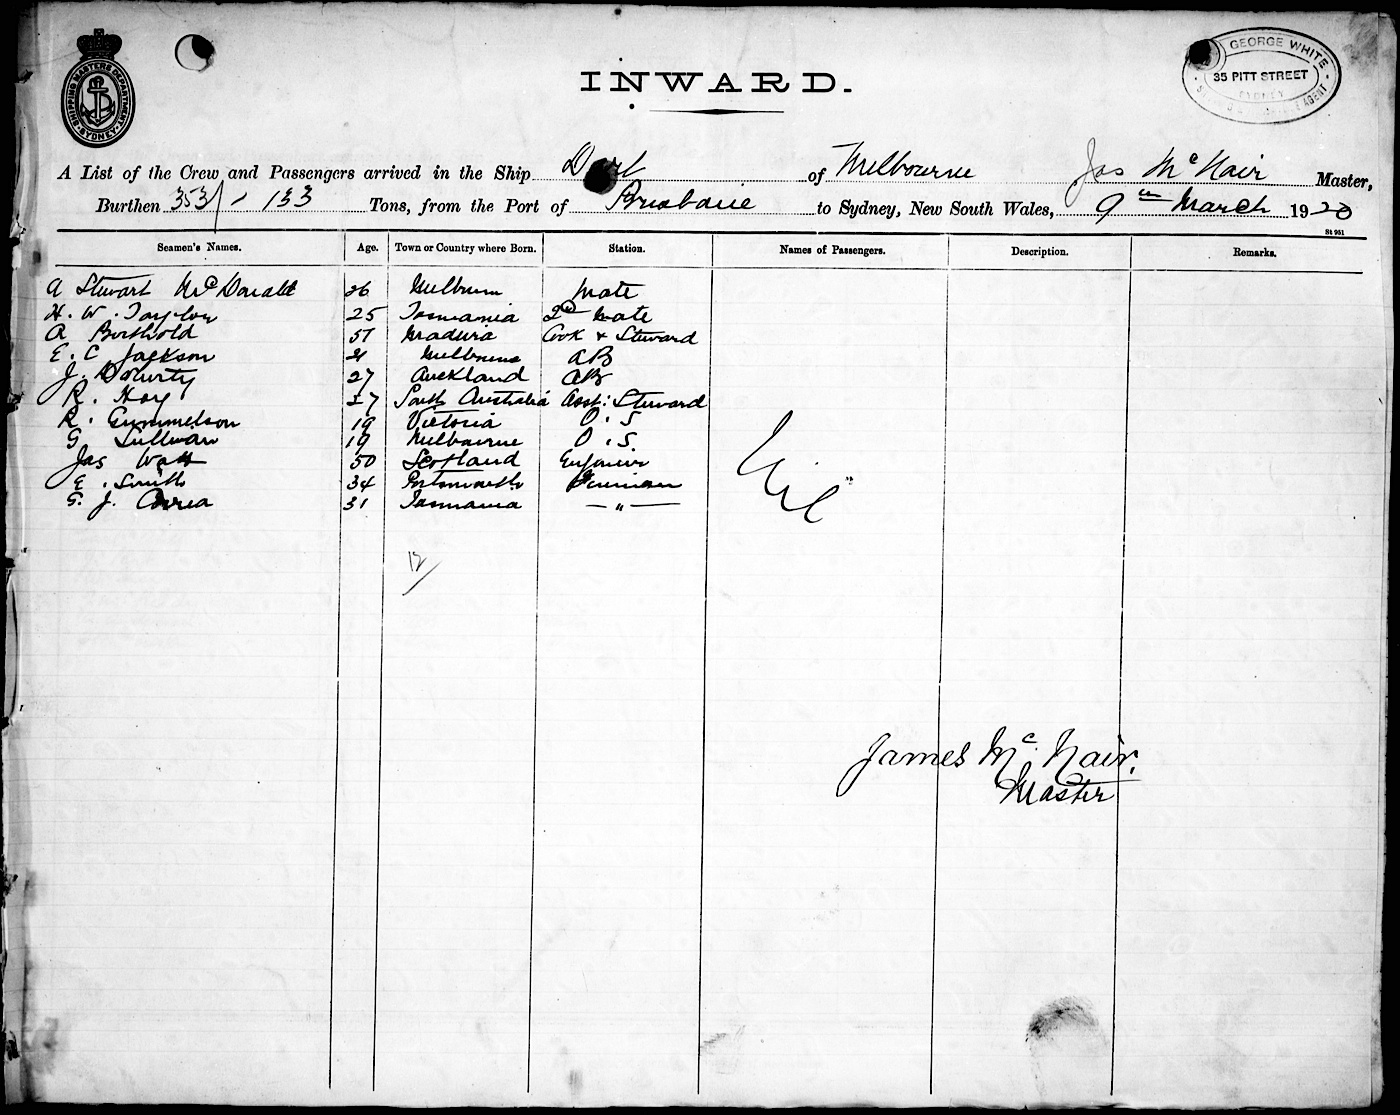 SHIPPING MASTERS DEPARTMENT. SYDNEY
INWARD.
GEORGE WHITE
35 PITT STREET
SYDNEY
AGENT
A List of the Crew and Passengers arrived in the Ship of Melbourne Jas McNair Master,
Burthen 353/ - 133 Tons, from the Port of Brisbane to Sydney, New South Wales, 9th March 1920
St 951
Seamen's Names. Age. Town or Country where Born. Station. Names of Passengers. Description. Remarks.
A Stewart McDonald 26 Melburn Mate
H. W. Taylor 25 Tasmania 2nd Mate
A Berthold 51 Madeira Cook & Steward
E. C Jackson 21 Melbourne AB
J. Doherty 27 Auckland AB
R. Hoy 27 South Australia Asst: Steward
R. Gummelson 19 Victoria O.S
G Sullivan 19 Melbourne O.S.
Jas Watt 50 Scotland Engineer
E. Smith 34 Portsmouth Fireman
G. J. Correa 31 Tasmania — " —
Nil
12/
James McNair.
Master